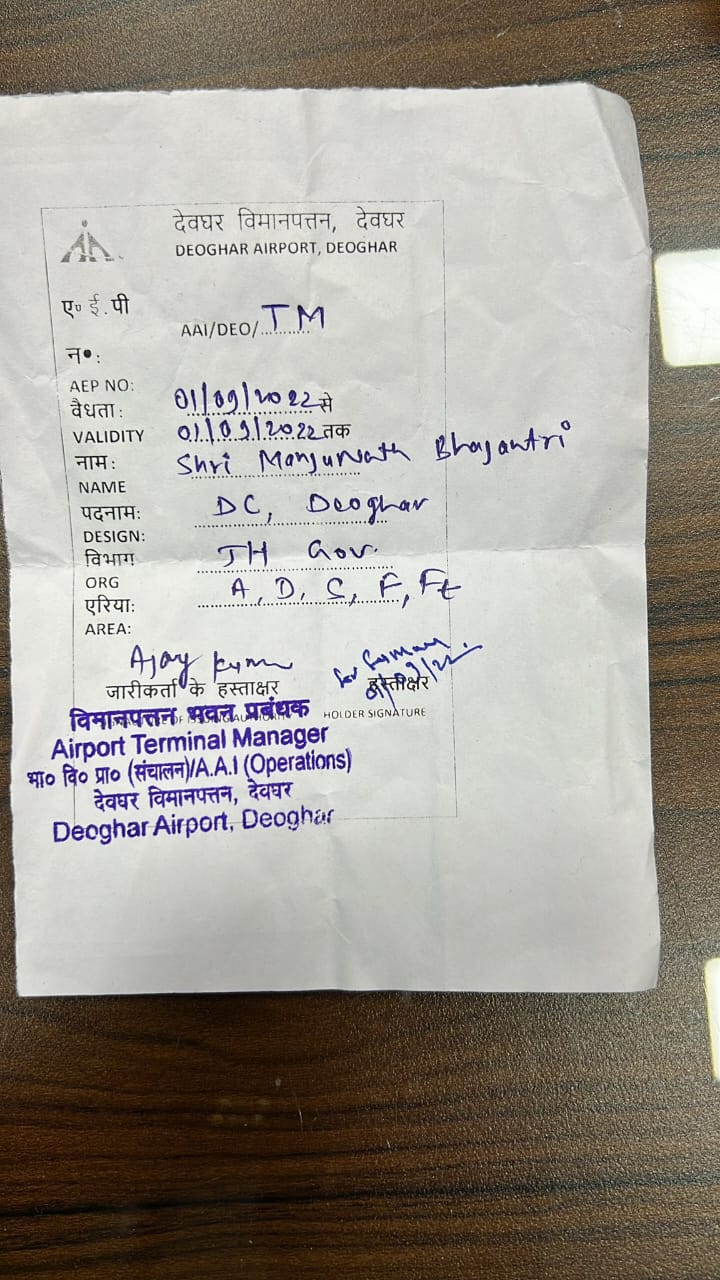 देवघर विमानपत्तन, देवघर
DEOGHAR AIRPORT, DEOGHAR
ए॰ ई.पी
AAI/DEO/..TM
न॰:
AEP NO:
वैधता: 01/09/2022 से
VALIDITY 01/09/2022 तक
नाम: Shri Manjunath Bhajantri
NAME
पदनाम: DC, Deoghar
DESIGN:
विभाग JH Gov.
ORG
एरिया: A, D, S, F, Ft
AREA:
Ajay Kumar
01/09/22
जारीकर्ता के हस्ताक्षर हस्ताक्षर
HOLDER SIGNATURE
विमानपत्तन भवन प्रबंधक
Airport Terminal Manager
भा० वि० प्रा० (संचालन)/A.A.I (Operations)
देवघर विमानपत्तन, देवघर
Deoghar Airport, Deoghar